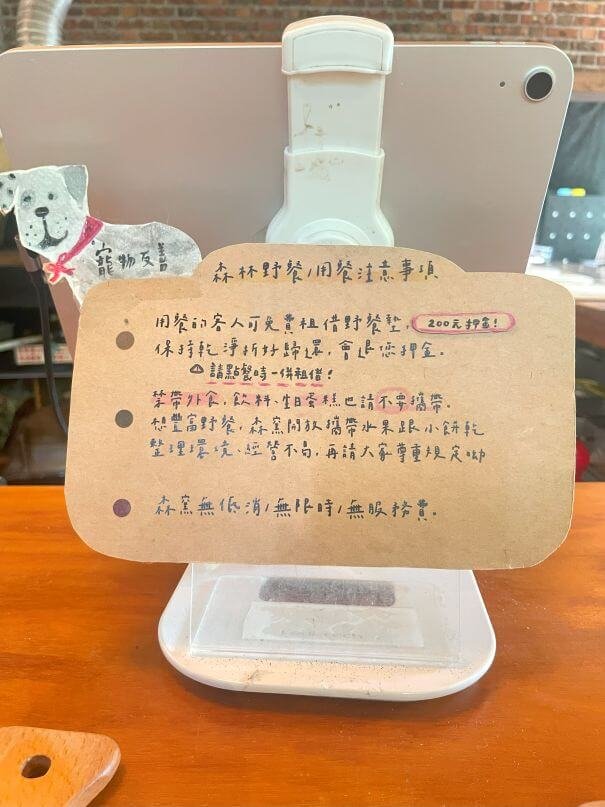 寵物友善
森林野餐/用餐注意事項
用餐的客人可免費租借野餐墊,200元押金!
保持乾淨折好歸還,會退您押金。
請點餐時一併租借!
禁帶外食,飲料、生日蛋糕也請不要攜帶。
想豐富野餐,森窯開放攜帶水果跟小餅乾
整理環境、經營不易,再請大家尊重規定呦
森窯無低消/無限時/無服務費。